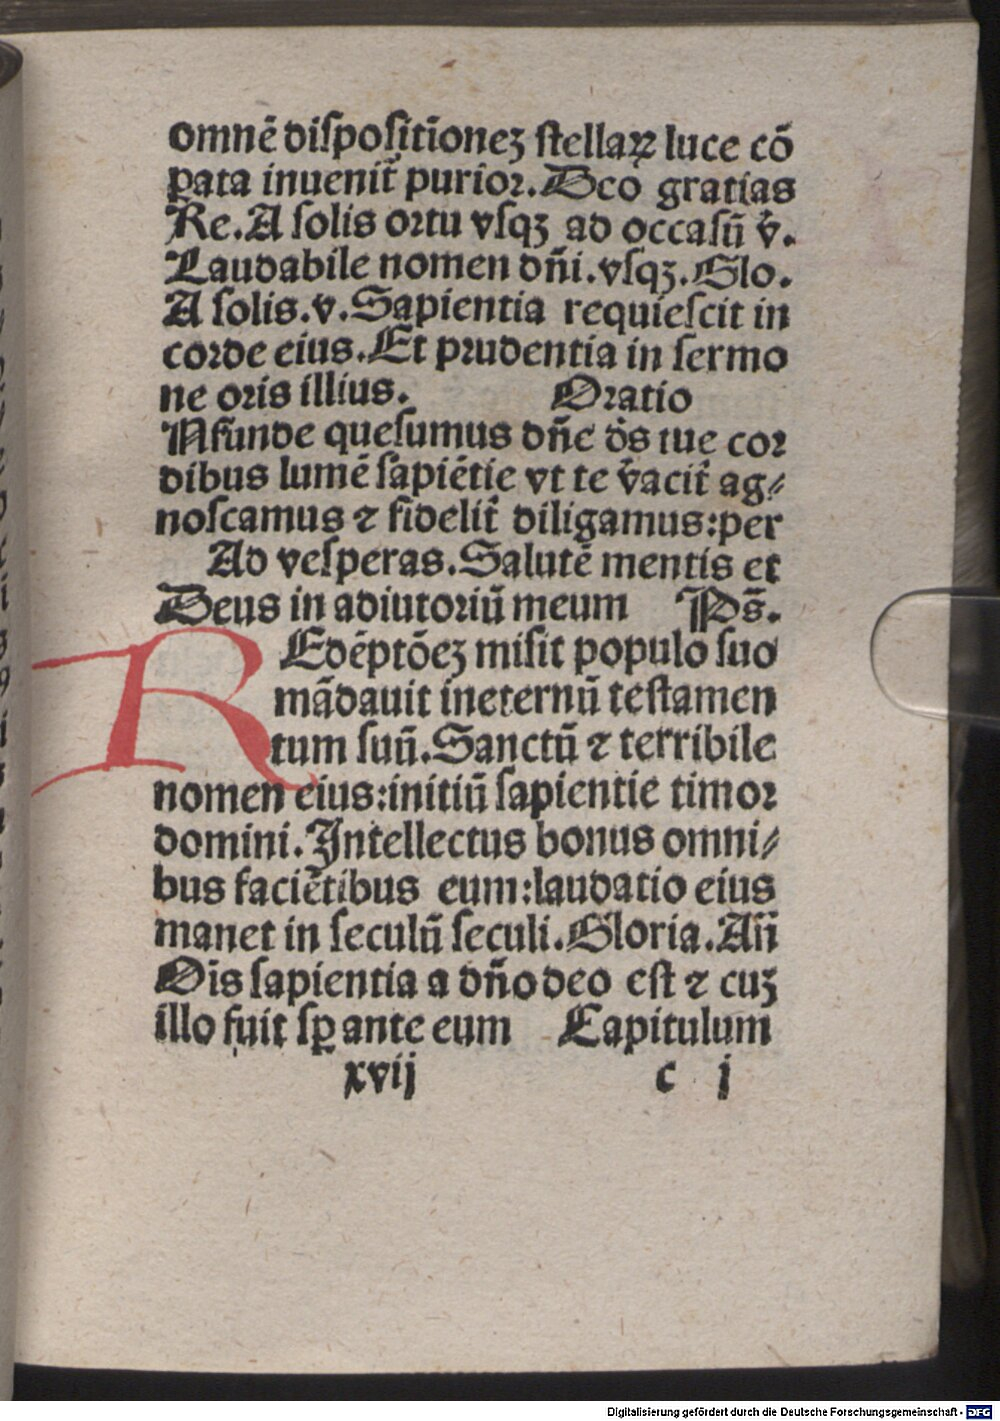 omnē diſpoſitiōnez ſtellaꝝ luce cō
ꝑata inuenit᷑ purior. Deo gratias
Re. A ſolis ortu vſqꝫ ad occaſū v̄.
Laudabile nomen dñi. vſqꝫ. Glo.
A ſolis. v. Sapientia requieſcit in
corde eius. Et prudentia in ſermo
ne oris illius. Oratio
INfunde queſumus dñe d̄s tue cor
dibus lumē ſapiētie vt te v̄acit᷑ ag⸗
noſcamus ⁊ fidelit᷑ diligamus: per
Ad veſperas. Salutē mentis et
Deus in adiutoriū meum Ps̄.
REdēptōeꝫ miſit populo ſuo
mādauit ineternū teſtamen
tum ſuū. Sanctū ⁊ terribile
nomen eius: initiū ſapientie timor
domini. Intellectus bonus omni⸗
bus faciētibus eum: laudatio eius
manet in ſeculū ſeculi. Gloria. Añ
Oīs ſapientia a dño deo eſt ⁊ cuꝫ
illo fuit ſꝑ ante eum Capitulum
xvij c j
Digitalisierung gefördert durch die Deutsche Forschungsgemeinschaft - DFG